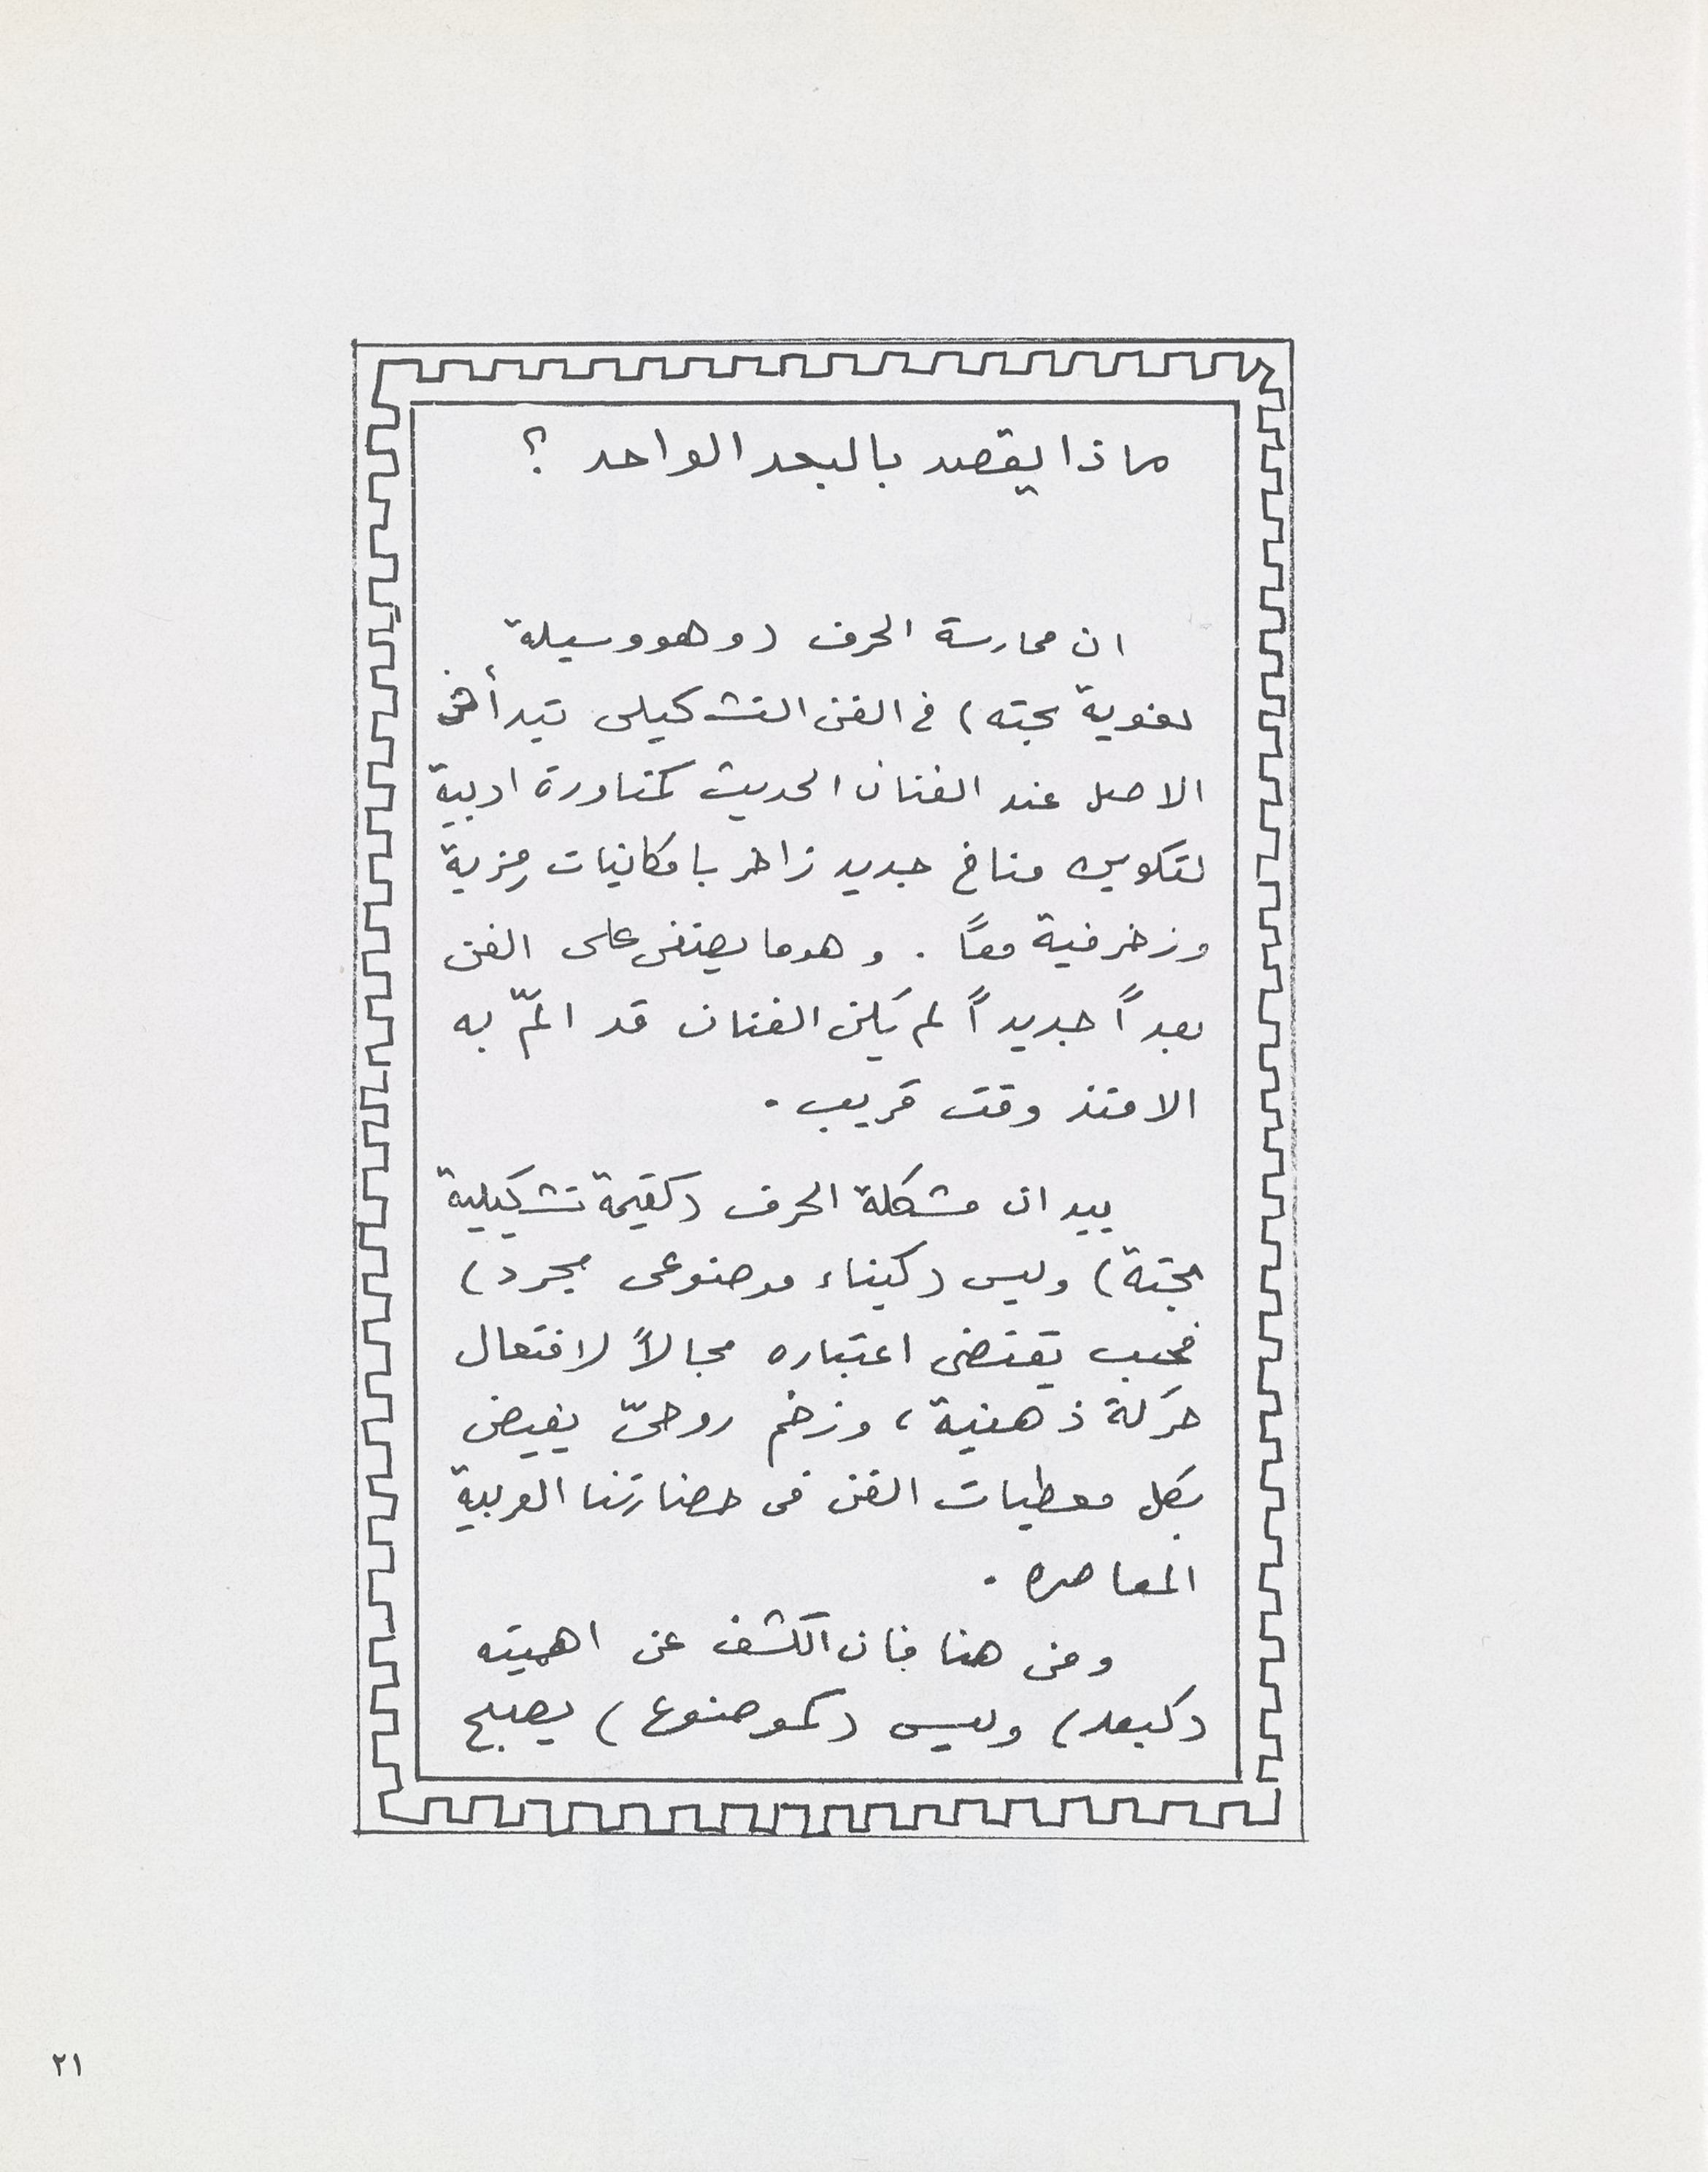 ماذا يقصد بالبعد الواحد ؟
ان ممارسة الحرف (وهو وسيلة
لغوية بحته) في الفن التشكيلي تبدأ في
الاصل عند الفنان الحديث كمناورة ادبية
لتكوين مناخ جديد زاخر بامكانيات رمزية
وزخرفية معاً . وهو ما يضفى على الفن
بعداً جديداً لم يكن الفنان قد المّ به
الا منذ وقت قريب .
بيد ان مشكلة الحرف (كقيمة تشكيلية
بحتة) وليس (كبناء موضوعى مجرد)
فحسب يقتضى اعتباره مجالاً لافتعال
حركة ذهنية ، وزخم روحىّ يفيض
بكل معطيات الفن فى حضارتنا العربية
المعاصره .
ومن هنا فان الكشف عن اهميته
(كبعد) وليس (كموضوع) يصبح
٢١